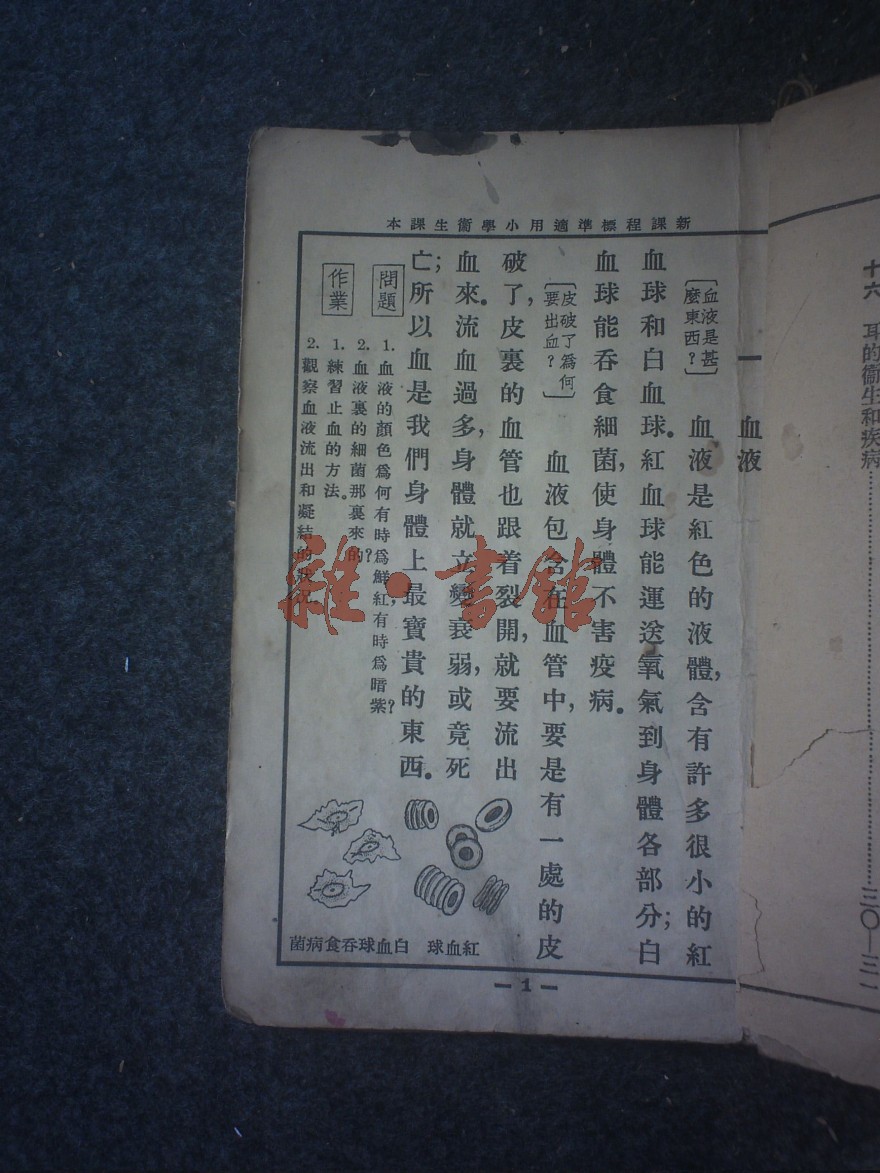 十六　耳的衞生和疾病……三〇—三一
新課程標準適用小學衞生課本
一　血液
〔血液是甚麼東西？〕
血液是紅色的液體，含有許多很小的紅
血球和白血球。紅血球能運送氧氣到身體各部分；白
血球能吞食細菌，使身體不害疫病。
〔皮破了爲何要出血？〕
血液包含在血管中，要是有一處的皮
破了，皮裏的血管也跟着裂開，就要流出
血來。流血過多，身體就立變衰弱，或竟死
亡；所以血是我們身體上最寶貴的東西。
問題
1. 血液的顏色爲何有時爲鮮紅，有時爲暗紫？
2. 血液裏的細菌那裏來的？
作業
1. 練習止血的方法。
2. 觀察血液流出和凝結的狀況。
紅血球
白血球吞食病菌
— 1 —
雜·書館